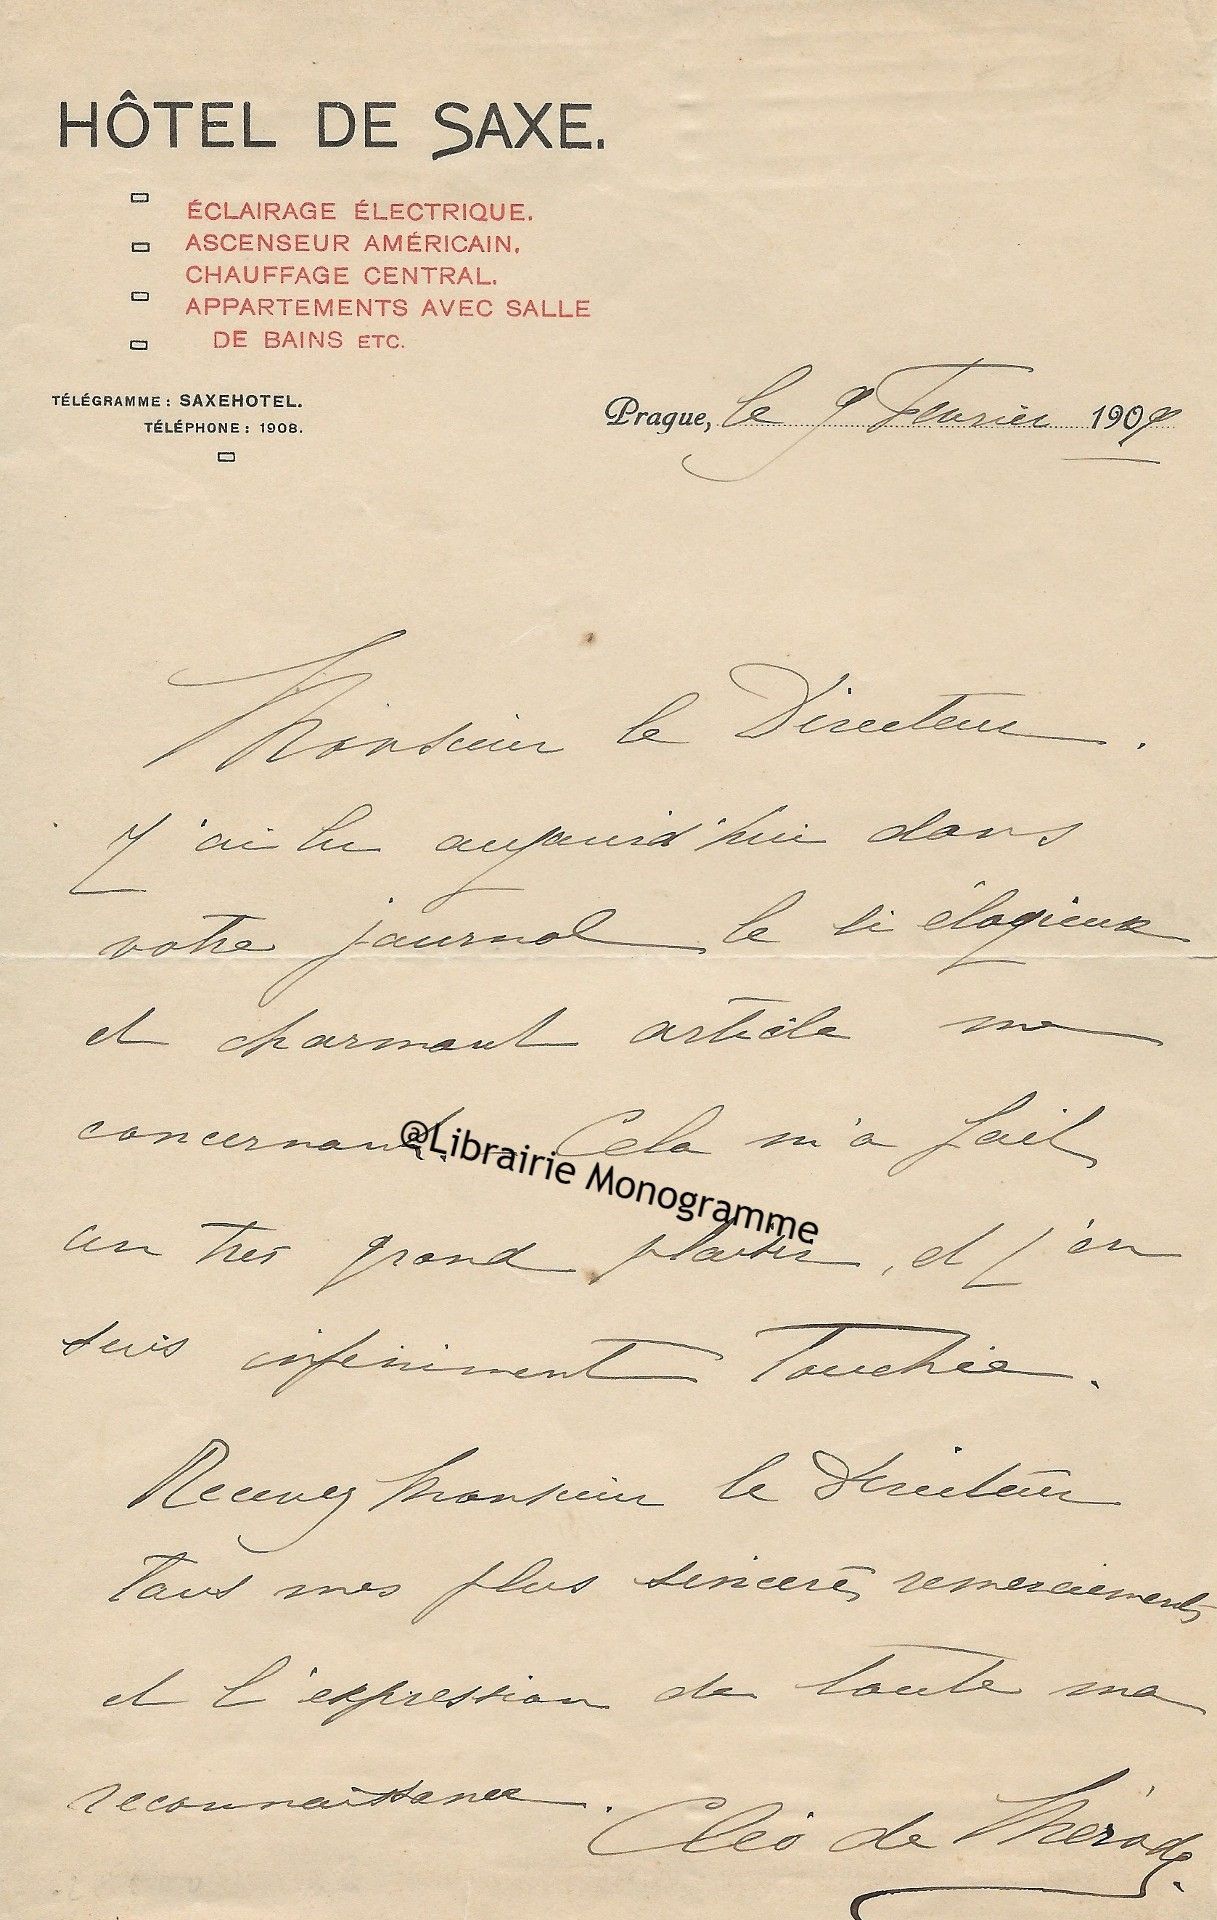 HÔTEL DE SAXE.
ÉCLAIRAGE ÉLECTRIQUE.
ASCENSEUR AMÉRICAIN.
CHAUFFAGE CENTRAL.
APPARTEMENTS AVEC SALLE
DE BAINS ETC.
TÉLÉGRAMME : SAXEHOTEL.
TÉLÉPHONE : 1908.
Prague, le 9 Fevrier 1909
Monsieur le Directeur.
J'ai lu aujourd'hui dans
votre journal le si élogieux
et charmant article me
concernant. Cela m'a fait
un très grand plaisir, et j'en
suis infiniment Touchée.
Recevez Monsieur le Directeur
Tous mes plus sincères remerciements
et l'expression de toute ma
reconnaissance.
Cléo de Mérode.
@Librairie Monogramme